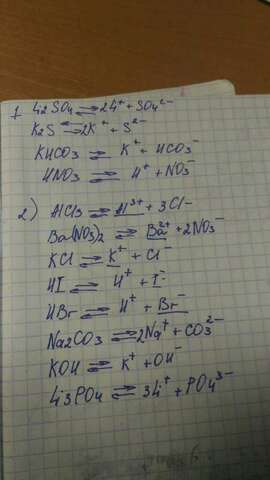 1. Li2SO4 ⇌ 2Li⁺ + SO4²⁻
K2S ⇌ 2K⁺ + S²⁻
KHCO3 ⇌ K⁺ + HCO3⁻
HNO3 ⇌ H⁺ + NO3⁻
2) AlCl3 ⇌ Al³⁺ + 3Cl⁻
Ba(NO3)2 ⇌ Ba²⁺ + 2NO3⁻
KCl ⇌ K⁺ + Cl⁻
HI ⇌ H⁺ + I⁻
HBr ⇌ H⁺ + Br⁻
Na2CO3 ⇌ 2Na⁺ + CO3²⁻
KOH ⇌ K⁺ + OH⁻
Li3PO4 ⇌ 3Li⁺ + PO4³⁻